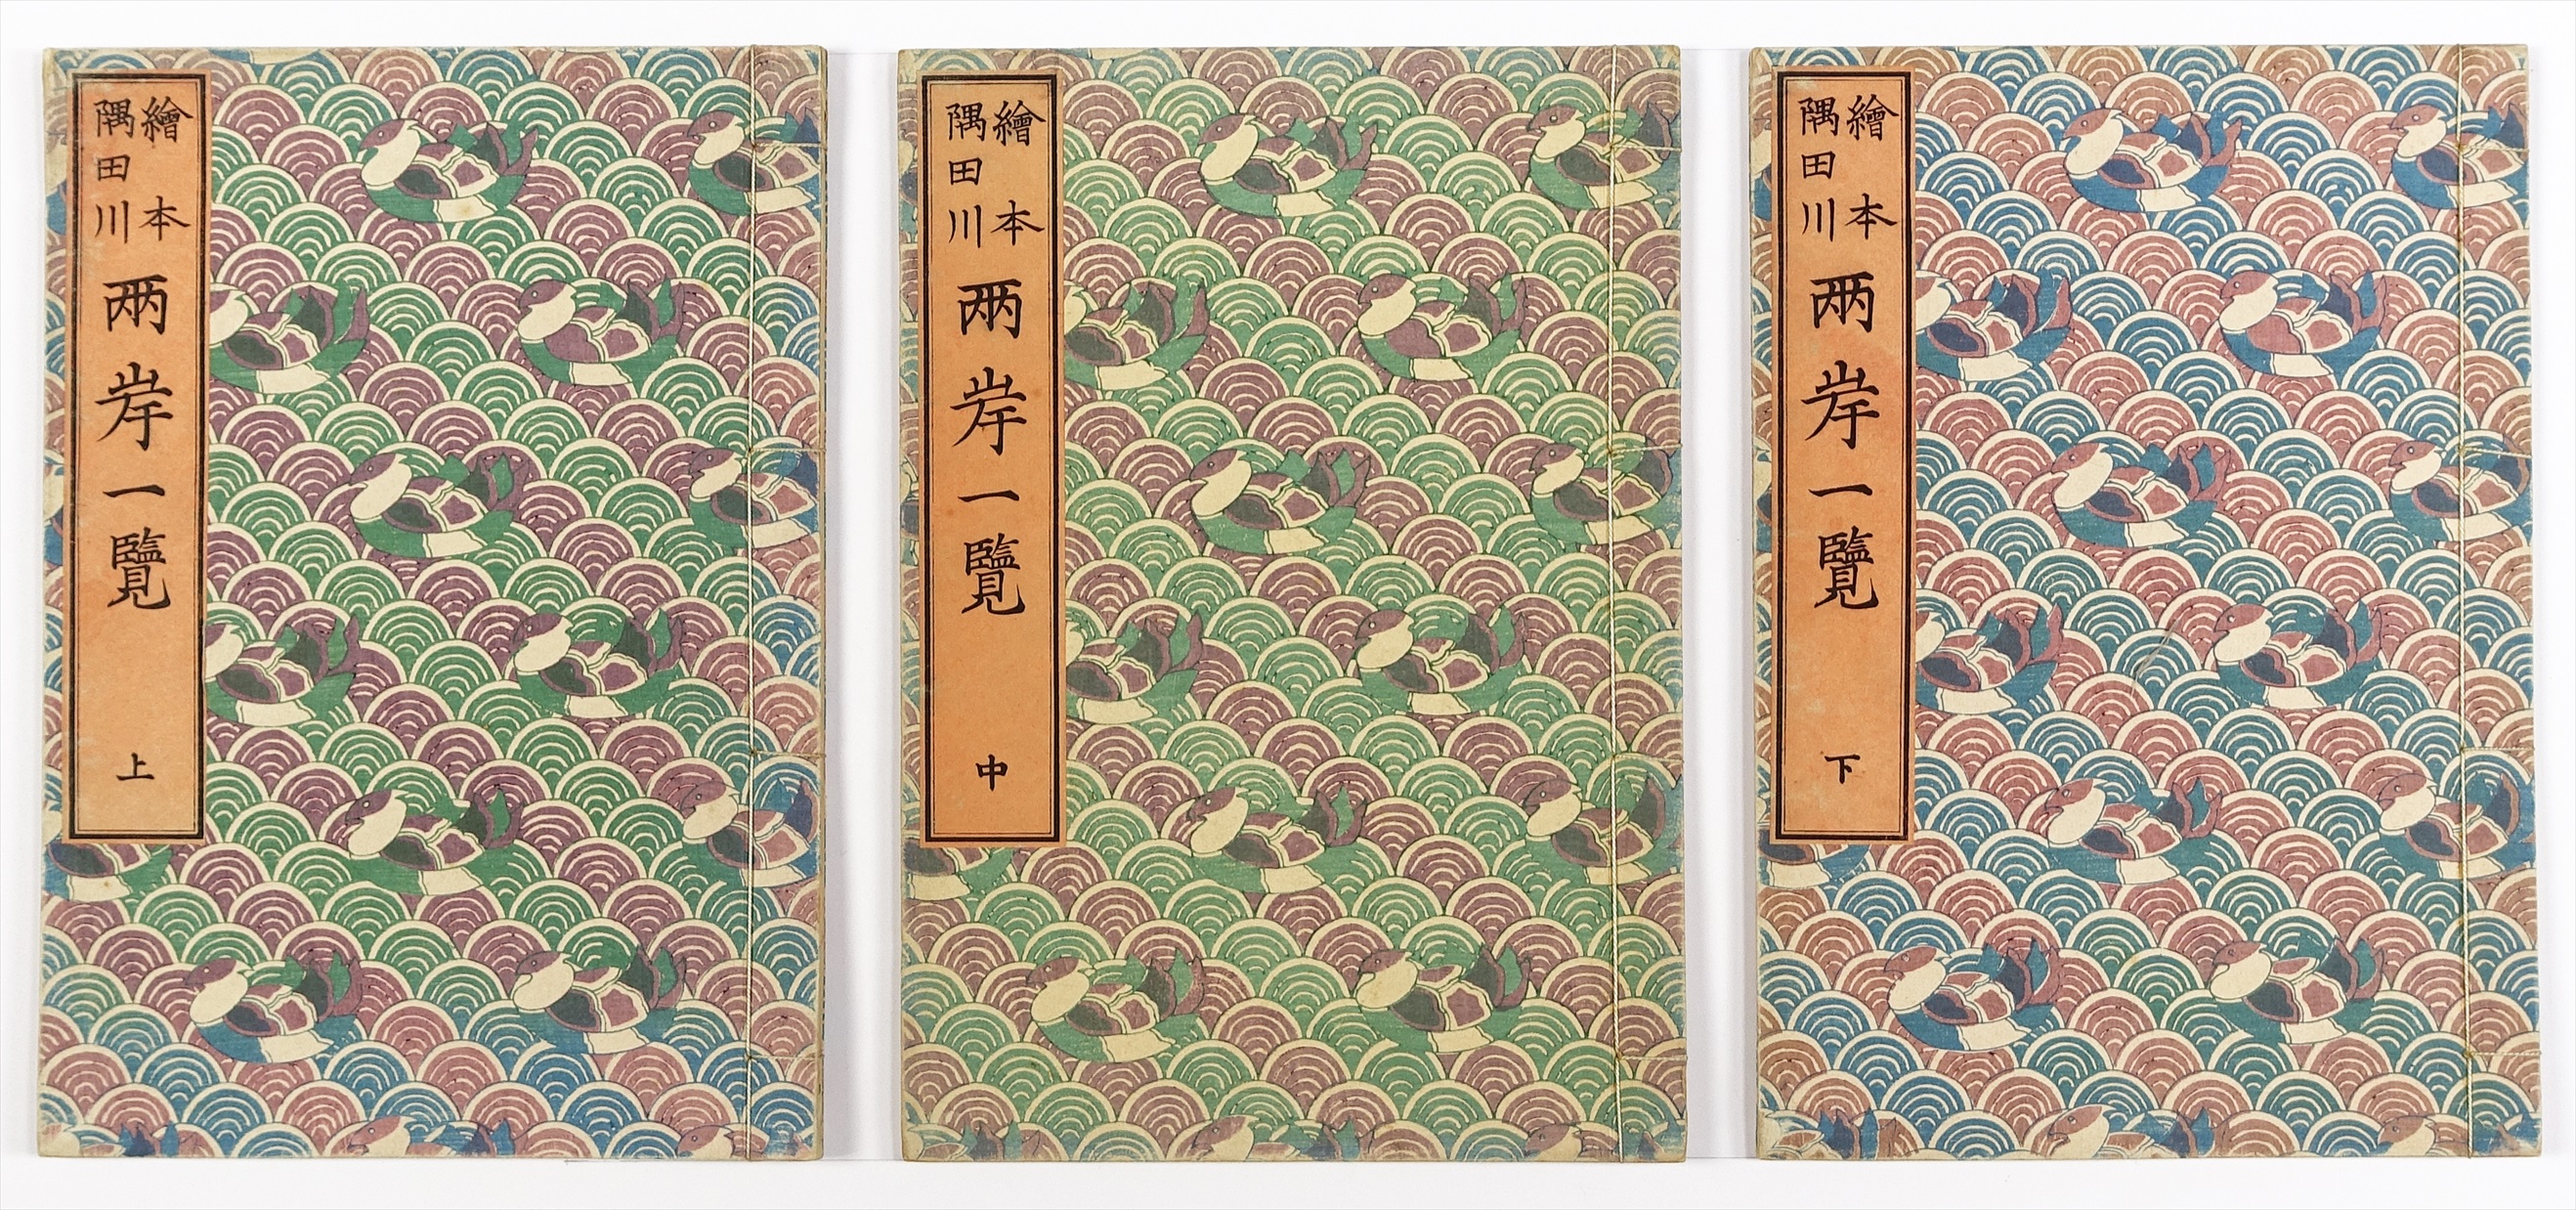 繪本
隅田川
兩岸一覽
上
繪本
隅田川
兩岸一覽
中
繪本
隅田川
兩岸一覽
下